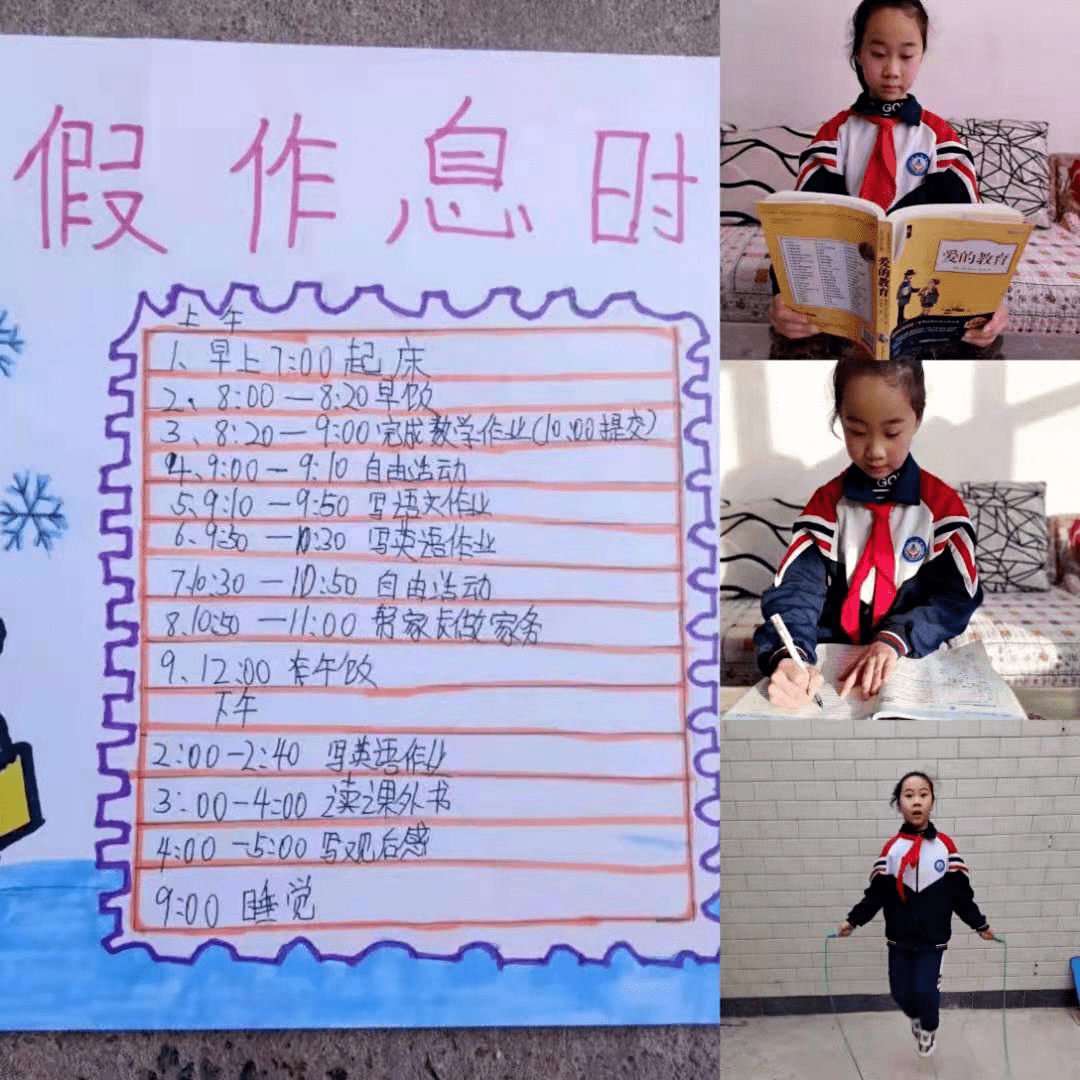 假作息时
上午
1、早上7:00起床
2、8:00—8:20早饭
3、8:20—9:00完成数学作业(10:00提交)
4、9:00—9:10 自由活动
5、9:10—9:50 写语文作业
6、9:50—10:30 写英语作业
7、10:30—10:50 自由活动
8、10:50—11:00 帮家长做家务
9、12:00 午饭
下午
2:00—2:40 写英语作业
3:00—4:00 读课外书
4:00—5:00 写观后感
9:00 睡觉
爱的教育
爱的教育